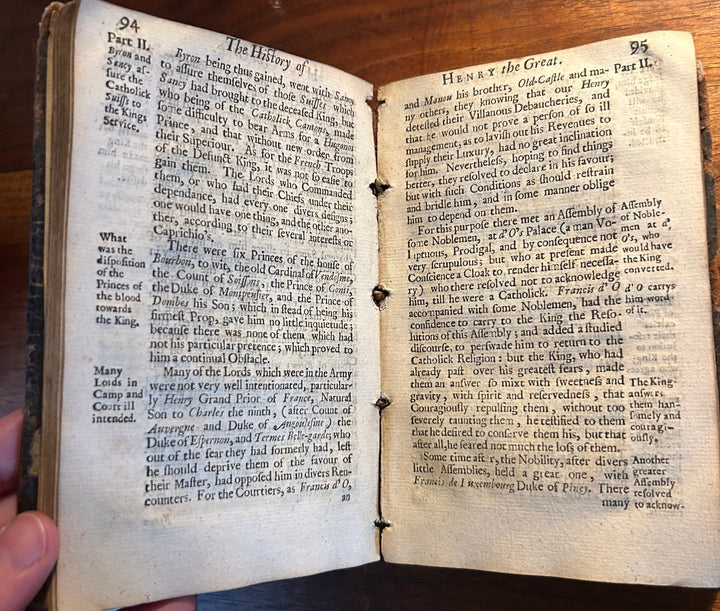 94
The History of
Part II.
Byron and
Sancy as-
sure the
Catholick
Swiss to
the Kings
Service.
Byron being thus gained, went with Sancy
to assure themselves of those Suisses which
Sancy had brought to the deceased King, but
who being of the Catholick Cantons, made
some difficulty to bear Arms for a Hugonot
Prince, and that without new order from
their Superiour. As for the French Troops
of the Defunct King, it was not so easie to
gain them. The Lords who Commanded
them, or who had their Chiefs under their
dependance, had every one divers designs;
one would have one thing, and the other ano-
ther, according to their several interests or
Caprichio's.
What
was the
disposition
of the
Princes of
the blood
towards
the King.
There were six Princes of the house of
Bourbon, to wit, the old Cardinal of Vendosme,
the Count of Soissons, the Prince of Conti,
the Duke of Montpensier, and the Prince of
Dombes his Son; which in stead of being his
firmest Prop, gave him no little inquietude;
because there was none of them which had
not his particular pretence; which proved to
him a continual Obstacle.
Many
Lords in
Camp and
Court ill
intended.
Many of the Lords which were in the Army
were not very well intentionated, particular-
ly Henry Grand Prior of France, Natural
Son to Charles the ninth, (after Count of
Auvergne and Duke of Angoulesme) the
Duke of Espernon, and Termes Belle-garde; who
out of the fear they had formerly had, lest
he should deprive them of the favour of
their Master, had opposed him in divers Ren-
counters. For the Courtiers, as Francis d' O,
an
HENRY the Great.
95
Part II.
and Manou his brother, Old-Castle and ma-
ny others, they knowing that our Henry
detested their Villanous Debaucheries, and
that he would not prove a person of so ill
management, as to lavish out his Revenues to
supply their Luxury, had no great inclination
for him. Nevertheless, hoping to find things
better, they resolved to declare in his favour;
but with such Conditions as should restrain
and bridle him, and in some manner oblige
him to depend on them.
For this purpose there met an Assembly of
some Noblemen, at d' O's Palace (a man Vo-
luptuous, Prodigal, and by consequence not
very scrupulous; but who at present made
Conscience a Cloak to render himself necessa-
ry) who there resolved not to acknowledge
him, till he were a Catholick. Francis d' O
accompanied with some Noblemen, had the
confidence to carry to the King the Reso-
lutions of this Assembly; and added a studied
discourse, to perswade him to return to the
Catholick Religion: but the King, who had
already past over his greatest fears, made
them an answer so mixt with sweetness and
gravity, with spirit and reservedness, that
Couragiously repulsing them, without too
severely taunting them, he testified to them
that he desired to conserve them his, but that
after all, he feared not much the loss of them.
Assembly
of Noble-
men at d'
O's, who
would have
the King
converted.
d' O carrys
him word
of it.
The King
answers
them han-
somely and
couragi-
ously.
Some time after, the Nobility, after divers
little Assemblies, held a great one, with
Francis de Luxembourg Duke of Piney. There
many
Another
greater
Assembly
resolved
to acknow-